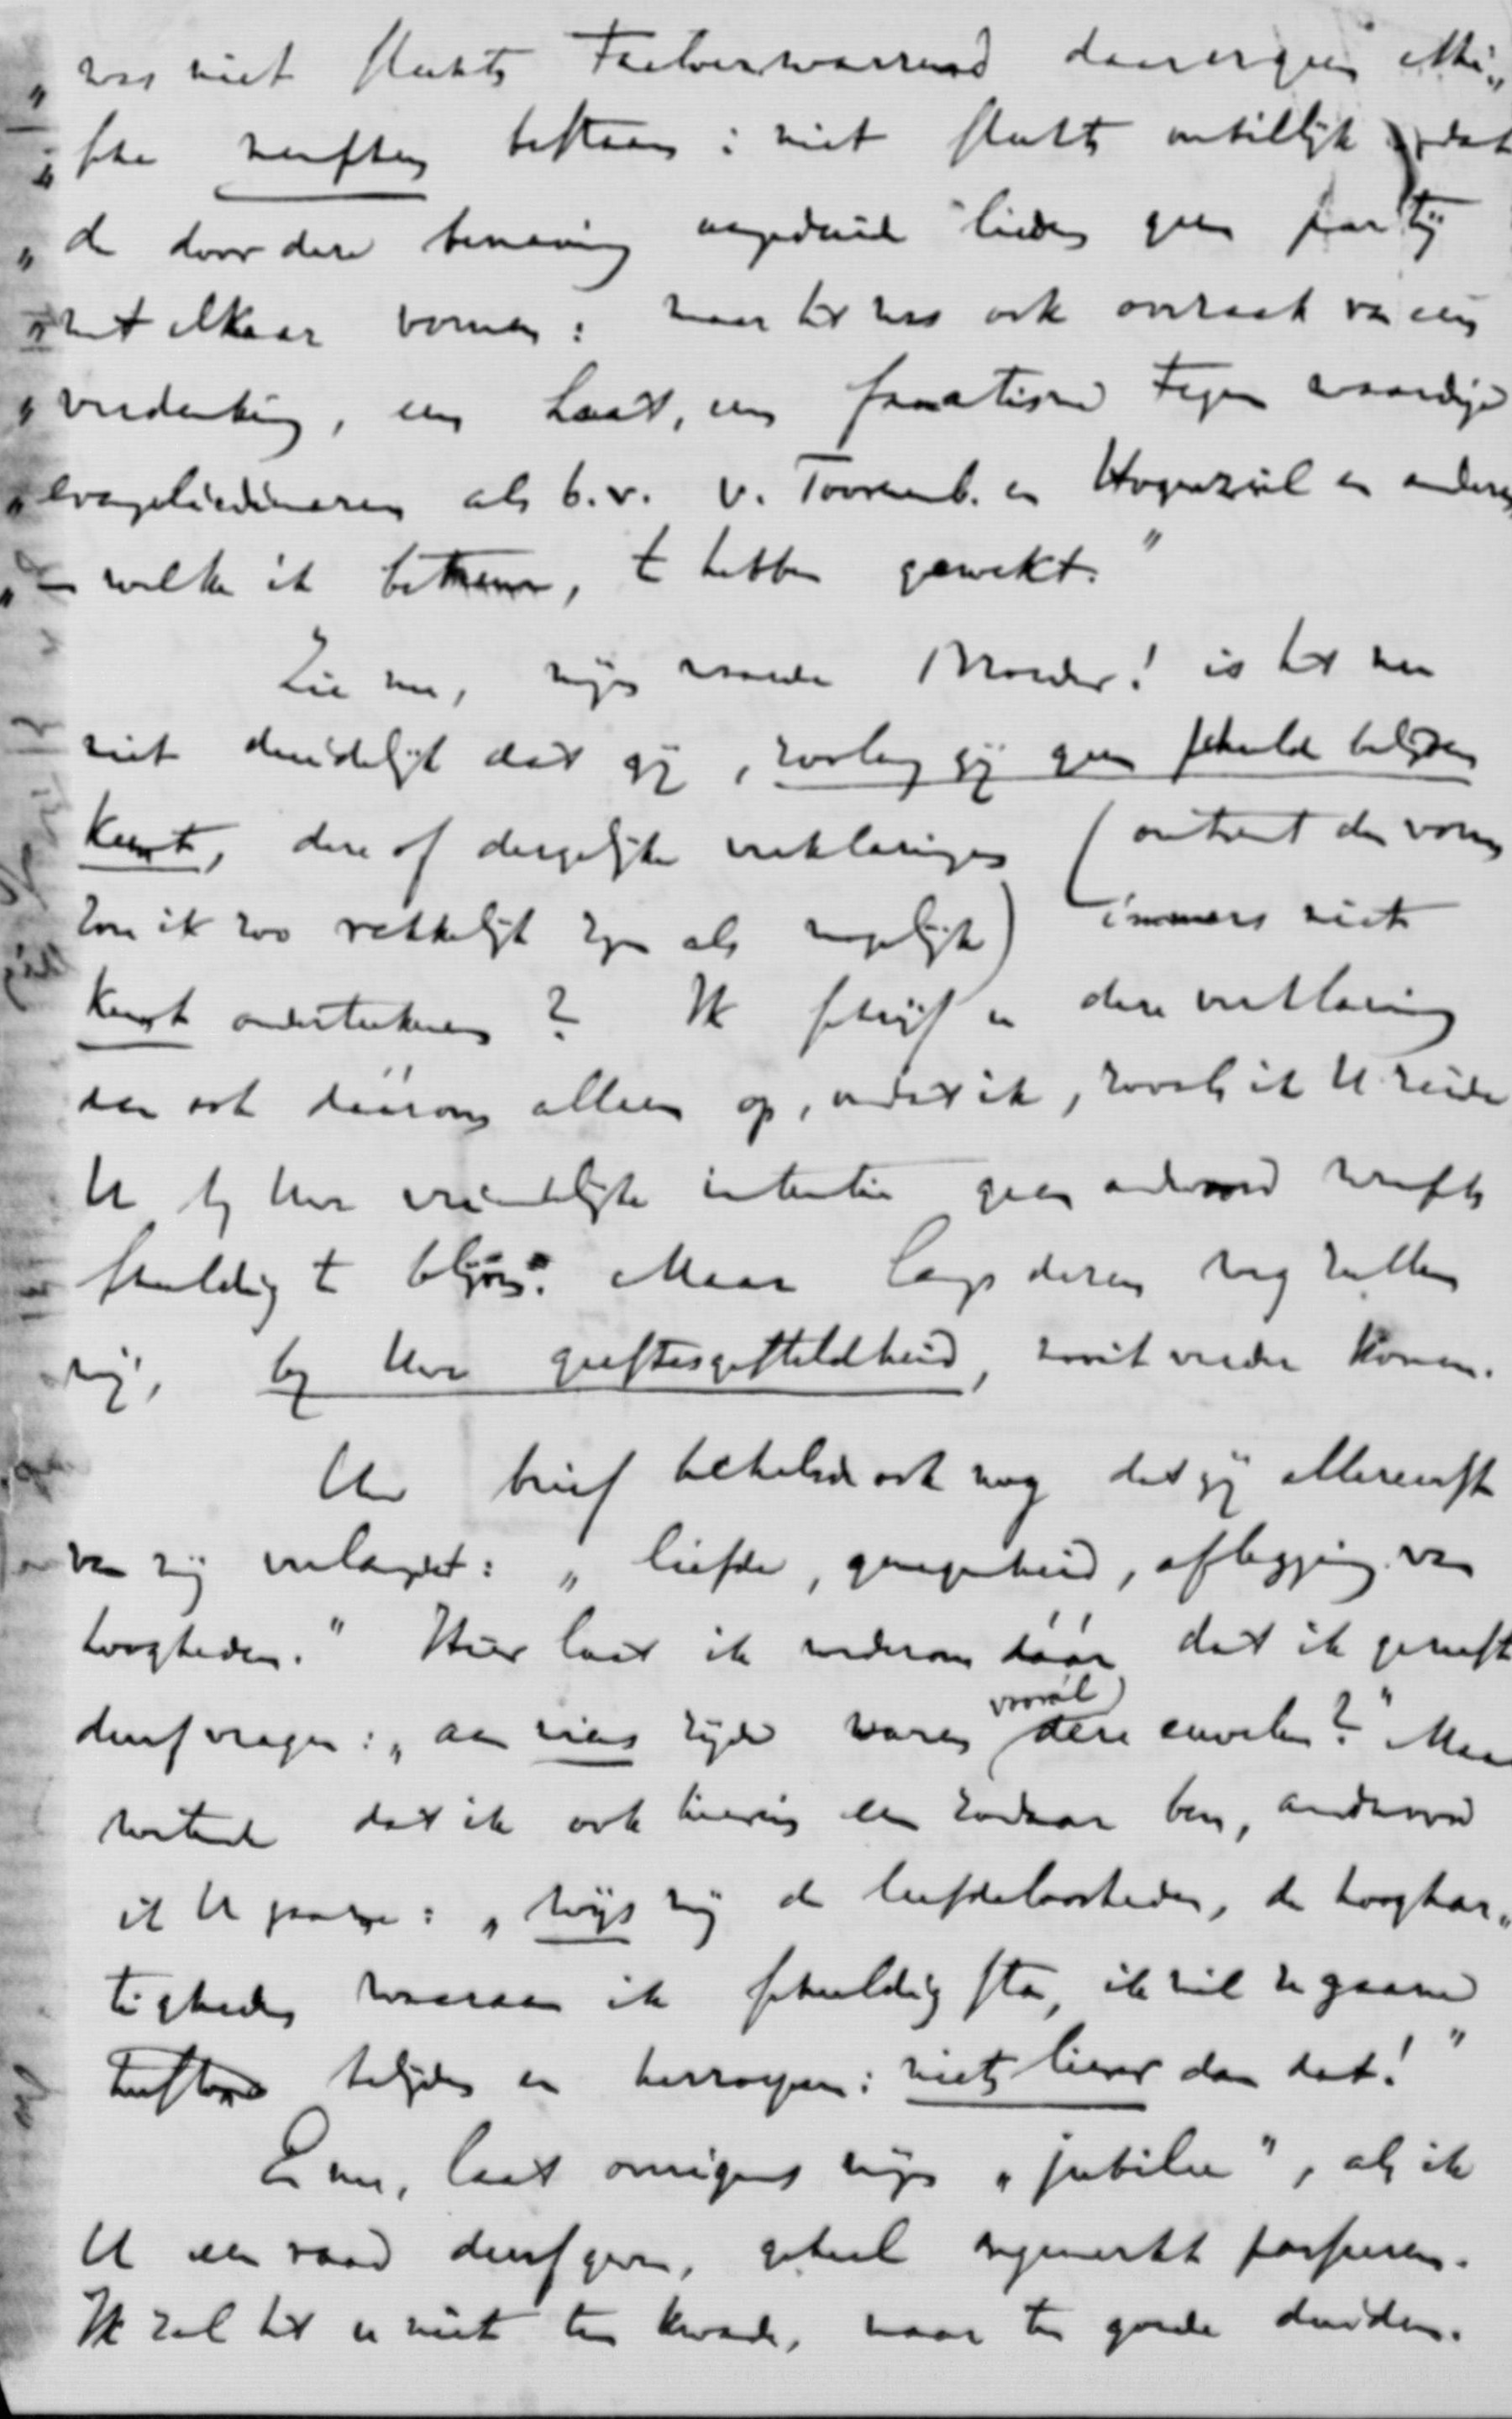 „was niet slechts taalverwarrend daar er geen ethi„
„sche menschen bestaan; niet slechts onbillijk omdat
„de door deze benaming aangeduide lieden geen partij
„met elkaar vormen: maar het was ook oorzaak van een
„verdenking, een haat, een fanatisme tegen waardige
„evangeliedienaren als b.v. v. Toorenb. en Hogerzeil en anderen
„— welke ik betreur, te hebben gewekt."
Zie nu, mijn waarde Broeder! is het nu
niet duidelijk dat gij, zoolang gij geen schuld belijden
kunt, deze of dergelijke verklaringen (omtrent den vorm
zou ik zoo rekkelijk zijn als mogelijk) immers niet
kunt onderteekenen? Ik schrijf u deze verklaring
dan ook dáárom alleen op, omdat ik, zooals ik U zeide
U bij Uw vriendelijke intentie geen andwoord wensch
schuldig te blijven. Maar langs dezen weg zullen
wij, bij Uwe geestesgesteldheid, nooit verder komen.
Uw brief behelsde ook nog dat gij allereerst
van mij verlangdet: „liefde, genegenheid, aflegging van
hoogheden." Hier laat ik wederom dáár dat ik gerust
durf vragen: „aan wiens zijde waren vooral deze euvelen?" Maar
wetende dat ik ook hierin een zondaar ben, andwoord
ik U gaarne: „wijs mij de liefdeloosheden, de hooghar„
tigheden waaraan ik schuldig sta, ik wil ze gaarne
belijden en herroepen: niets liever dan dat!"
En nu, laat overigens mijn „jubilee", als ik
U een raad durf geven, geheel ongemerkt passeeren.
Ik zal het u niet ten kwade, maar ten goede duiden.